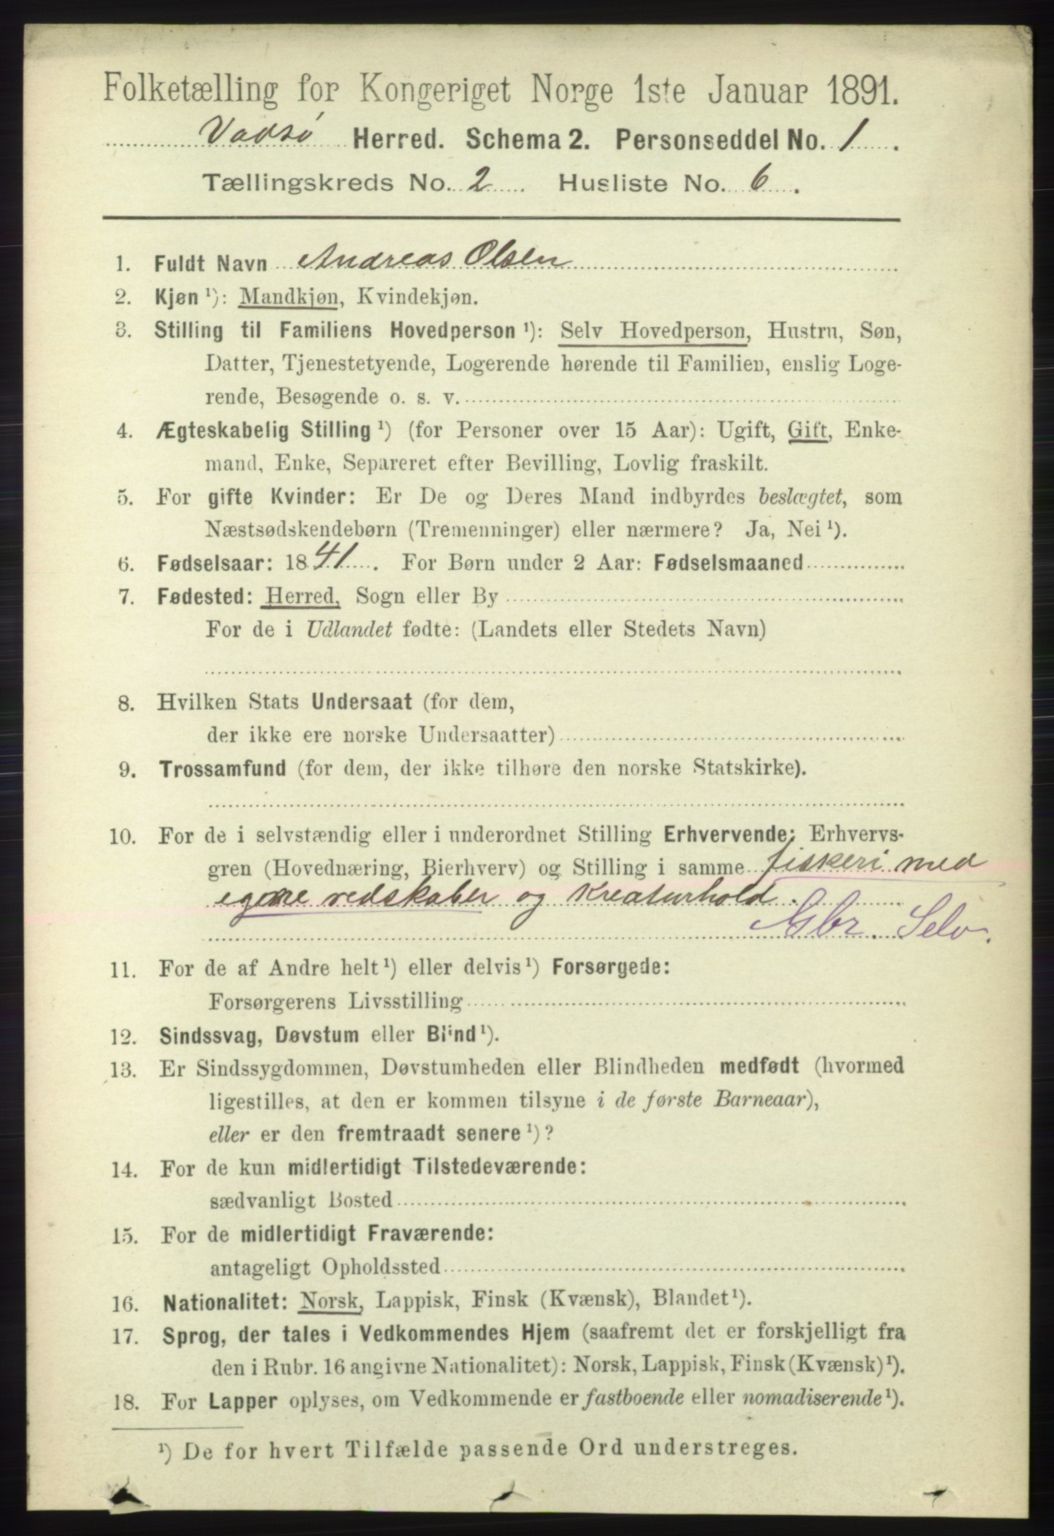 Folketælling for Kongeriget Norge 1ste Januar 1891.
Vadsø Herred. Schema 2. Personseddel No. 1.
Tællingskreds No. 2. Husliste No. 6.
1. Fuldt Navn Andreas Olsen
2. Kjøn ¹): Mandkjøn, Kvindekjøn.
3. Stilling til Familiens Hovedperson ¹): Selv Hovedperson, Hustru, Søn,
Datter, Tjenestetyende, Logerende hørende til Familien, enslig Loge-
rende, Besøgende o. s. v.
4. Ægteskabelig Stilling ¹) (for Personer over 15 Aar): Ugift, Gift, Enke-
mand, Enke, Separeret efter Bevilling, Lovlig fraskilt.
5. For gifte Kvinder: Er De og Deres Mand indbyrdes beslægtet, som
Næstsødskendebørn (Tremenninger) eller nærmere? Ja, Nei ¹).
6. Fødselsaar: 1841. For Børn under 2 Aar: Fødselsmaaned
7. Fødested: Herred, Sogn eller By
For de i Udlandet fødte: (Landets eller Stedets Navn)
8. Hvilken Stats Undersaat (for dem,
der ikke ere norske Undersaatter)
9. Trossamfund (for dem, der ikke tilhøre den norske Statskirke).
10. For de i selvstændig eller i underordnet Stilling Erhvervende: Erhvervs-
gren (Hovednæring, Bierhverv) og Stilling i samme fiskeri med
egene redskaber og Kreaturhold.
Gbr. Selv.
11. For de af Andre helt ¹) eller delvis ¹) Forsørgede:
Forsørgerens Livsstilling
12. Sindssvag, Døvstum eller Blind ¹).
13. Er Sindssygdommen, Døvstumheden eller Blindheden medfødt (hvormed
ligestilles, at den er kommen tilsyne i de første Barneaar),
eller er den fremtraadt senere ¹)?
14. For de kun midlertidigt Tilstedeværende:
sædvanligt Bosted
15. For de midlertidigt Fraværende:
antageligt Opholdssted
16. Nationalitet: Norsk, Lappisk, Finsk (Kvænsk), Blandet ¹).
17. Sprog, der tales i Vedkommendes Hjem (saafremt det er forskjelligt fra
den i Rubr. 16 angivne Nationalitet): Norsk, Lappisk, Finsk (Kvænsk) ¹).
18. For Lapper oplyses, om Vedkommende er fastboende eller nomadiserende ¹).
¹) De for hvert Tilfælde passende Ord understreges.